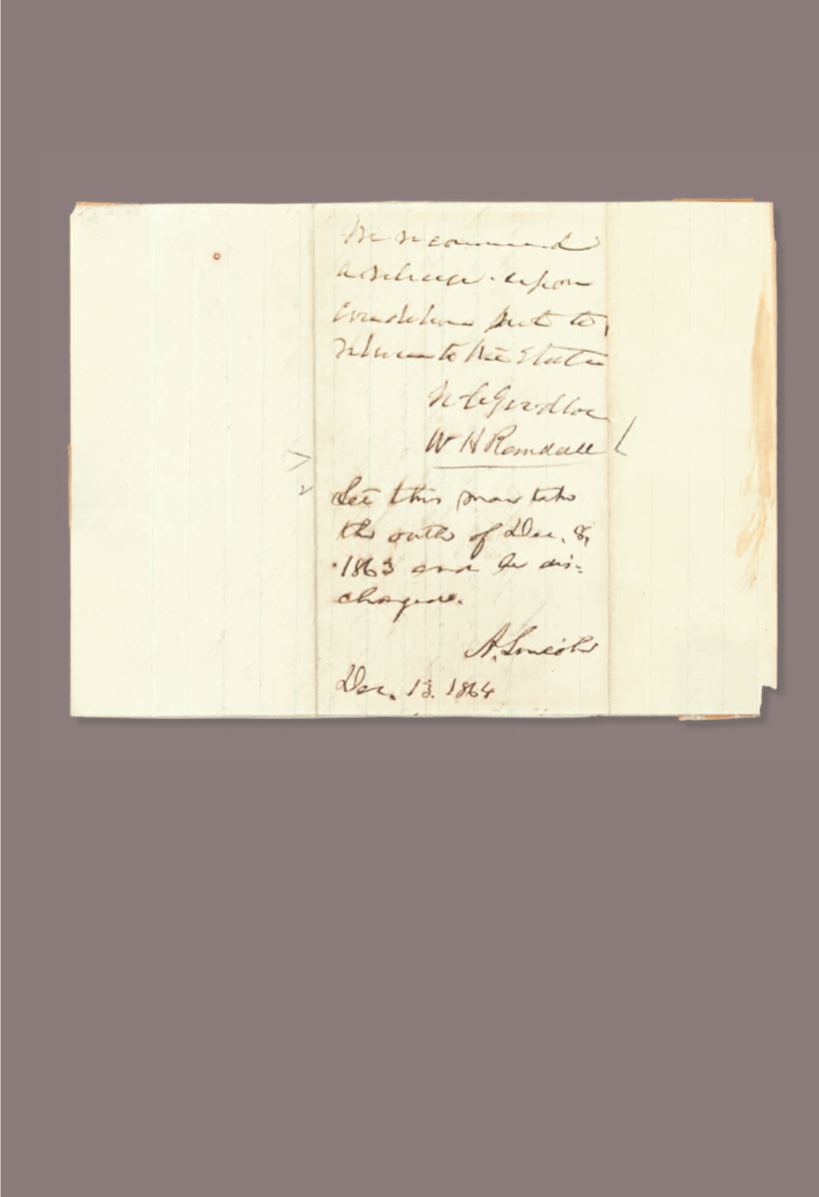 We recommend
a release upon
condition not to
return to the State
W H Randall
Let this man take
the oath of Dec. 8,
1863 and be dis-
charged.
A. Lincoln
Dec. 13. 1864